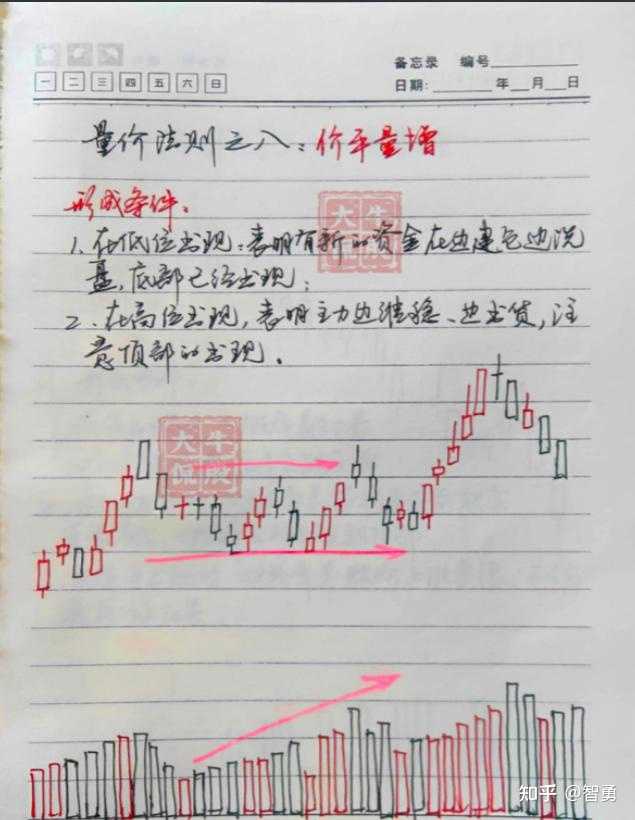 备忘录 编号
一 二 三 四 五 六 日
日期: 年 月 日
量价法则之八:价平量增
形成条件:
1、在低位出现:表明有新的资金在边建仓边洗
盘,底部已经出现;
2、在高位出现,表明主力边维稳、边出货,注
意顶部的出现。
大牛
侃股
大牛
侃股
知乎 @智勇